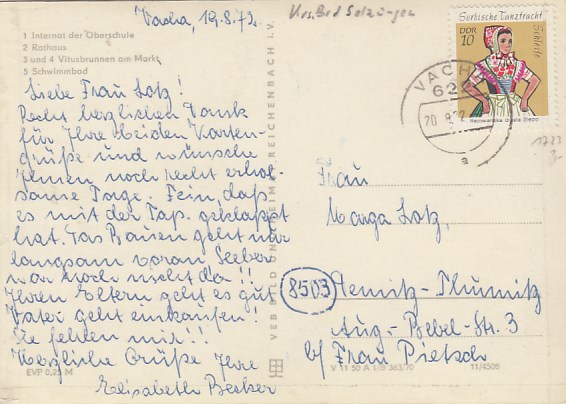 Vacha, 19.8.72
Krs. Bad Salzungen
1 Internat der Oberschule
2 Rathaus
3 und 4 Vitusbrunnen am Markt
5 Schwimmbad
Liebe Frau Lotz!
Recht herzlichen Dank
für Ihre beiden Karten-
grüße und wünsche
Ihnen noch recht erhol-
same Tage. Fein, daß
es mit der Tap. geklappt
hat. Das Bauen geht nur
langsam voran. Seeber
war noch nicht da!!
Ihren Eltern geht es gut
Vater geht einkaufen!
Sie fehlen mir!!
Herzliche Grüße Ihre
Elisabeth Becker
EVP 0,25 M
VEB BILD UND HEIMAT REICHENBACH I. V.
Sorbische Tanztracht
DDR
10
Schleife
VACHA
622
20.8.72
a
1723
Frau
Marga Lotz,
8503 Demitz-Thumitz
Aug.-Bebel-Str. 3
b/ Frau Pietsch
V 11 50 A 1/B 383/70 11/4506